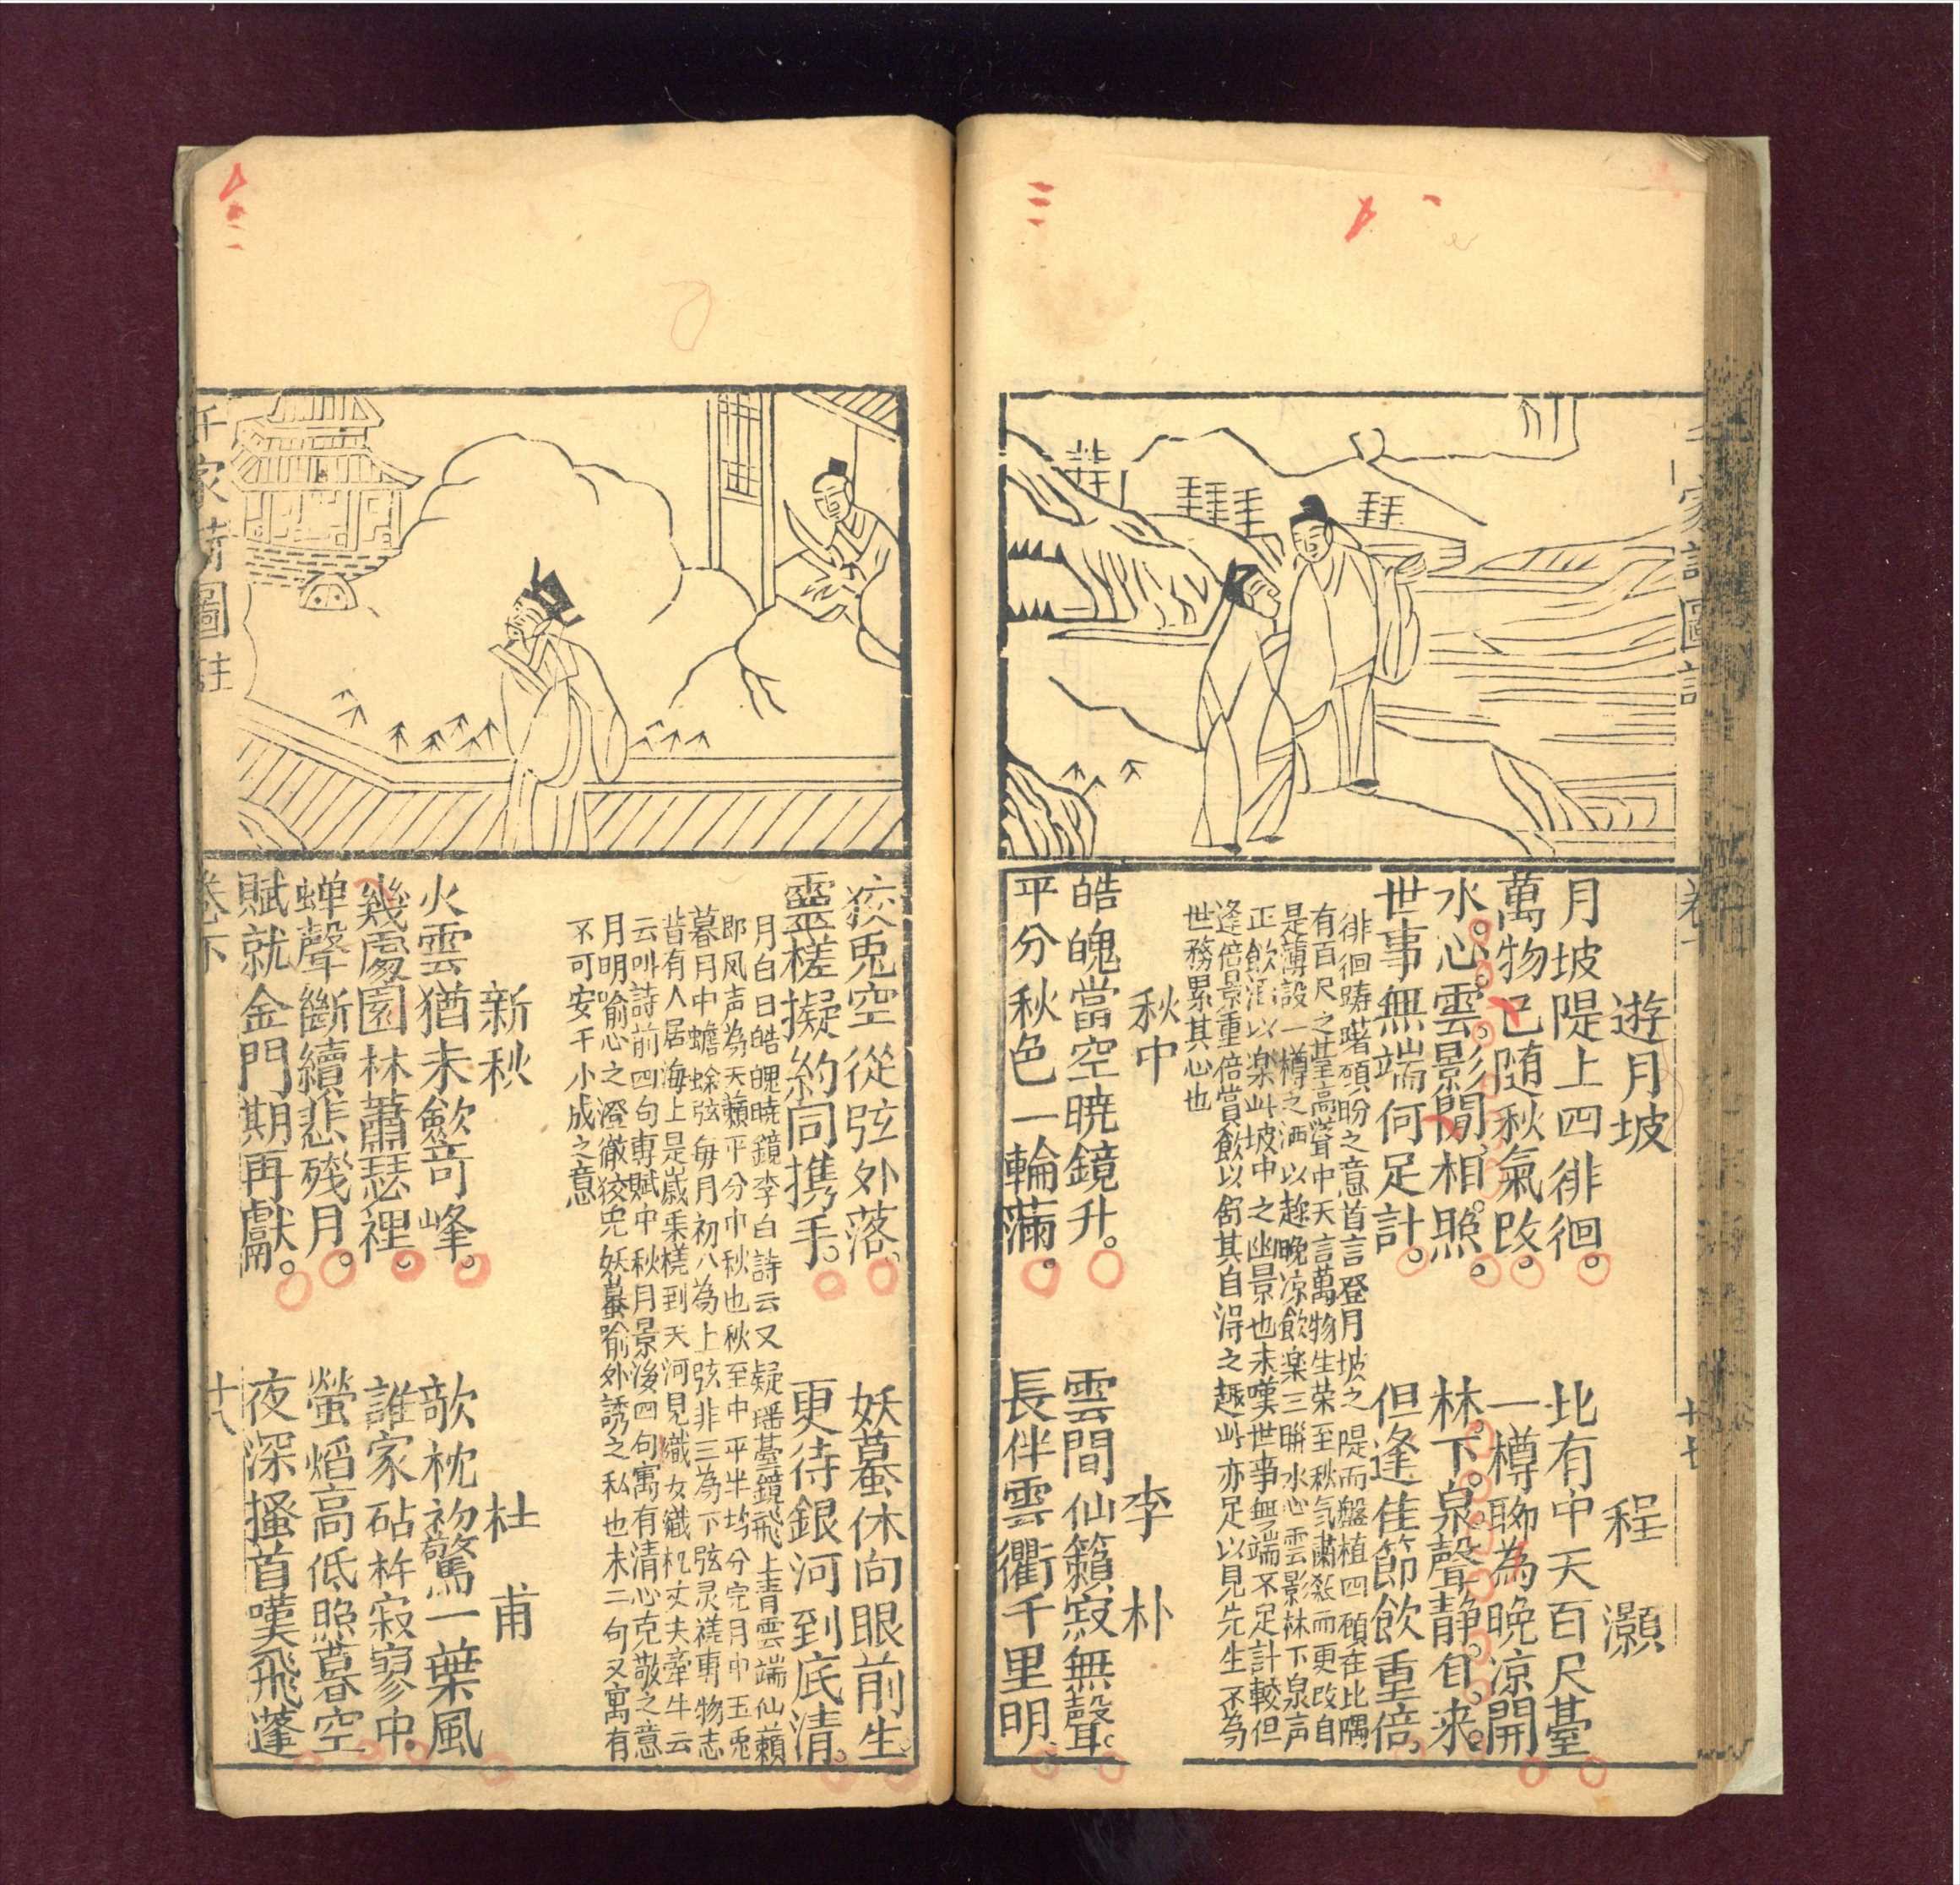 家詩圖註
遊月坡
程 灝
月坡隄上四徘徊。北有中天百尺臺
萬物已随秋氣改。一樽聊為晚凉開
水心雲影閒相照。林下泉聲静自来。
世事無端何足計。但逢佳節飲重倍。
徘徊踌躇頋盼之意首言登月坡之隄而盤植四頋在比隅
有百尺之臺高聳中天言萬物生荣至秋气肅殺而更改自
是薄設一樽之酒以趂晚凉飲楽三聨水心雲影林下泉声
正飲酒以楽此坡中之幽景也末嘆世事無端不足計較但
逢倍景重倍賞飲以舒其自淂之趣此亦足以見先生不為
世務累其心也
秋中
李 朴
皓魄當空暁鏡升。雲間仙籟寂無聲。
平分秋色一輪滿。長伴雲衢千里明
十七
狡兎空從弦外落。妖蟇休向眼前生。
靈槎擬約同携手。更待銀河到底清。
月白曰皓魄暁鏡李白詩云又疑瑶臺鏡飛上青雲端仙籟
即风声為天籟平分巾秋也秋至中平半均分完月中玉兎
暮月中蟾蜍弦毎月初八為上弦非三為下弦灵槎専物志
昔有人居海上是嵗乗槎到天河見織女織杼丈夫牽牛云
云叫詩前四句専賦中秋月景後四句寓有清心克敬之意
月明喻心之澄徹狡兎妖蟇喻外誘之私也末二句又寓有
不可安于小成之意
新秋
杜 甫
火雲猶未歛竒峰。欹枕初驚一葉風
幾處園林蕭瑟裡。誰家砧杵寂寥中
蝉聲斷續悲残月。螢熖高低照暮空
賦就金門期再獻。夜深搔首嘆飛蓬
家詩圖註
卷下
十八